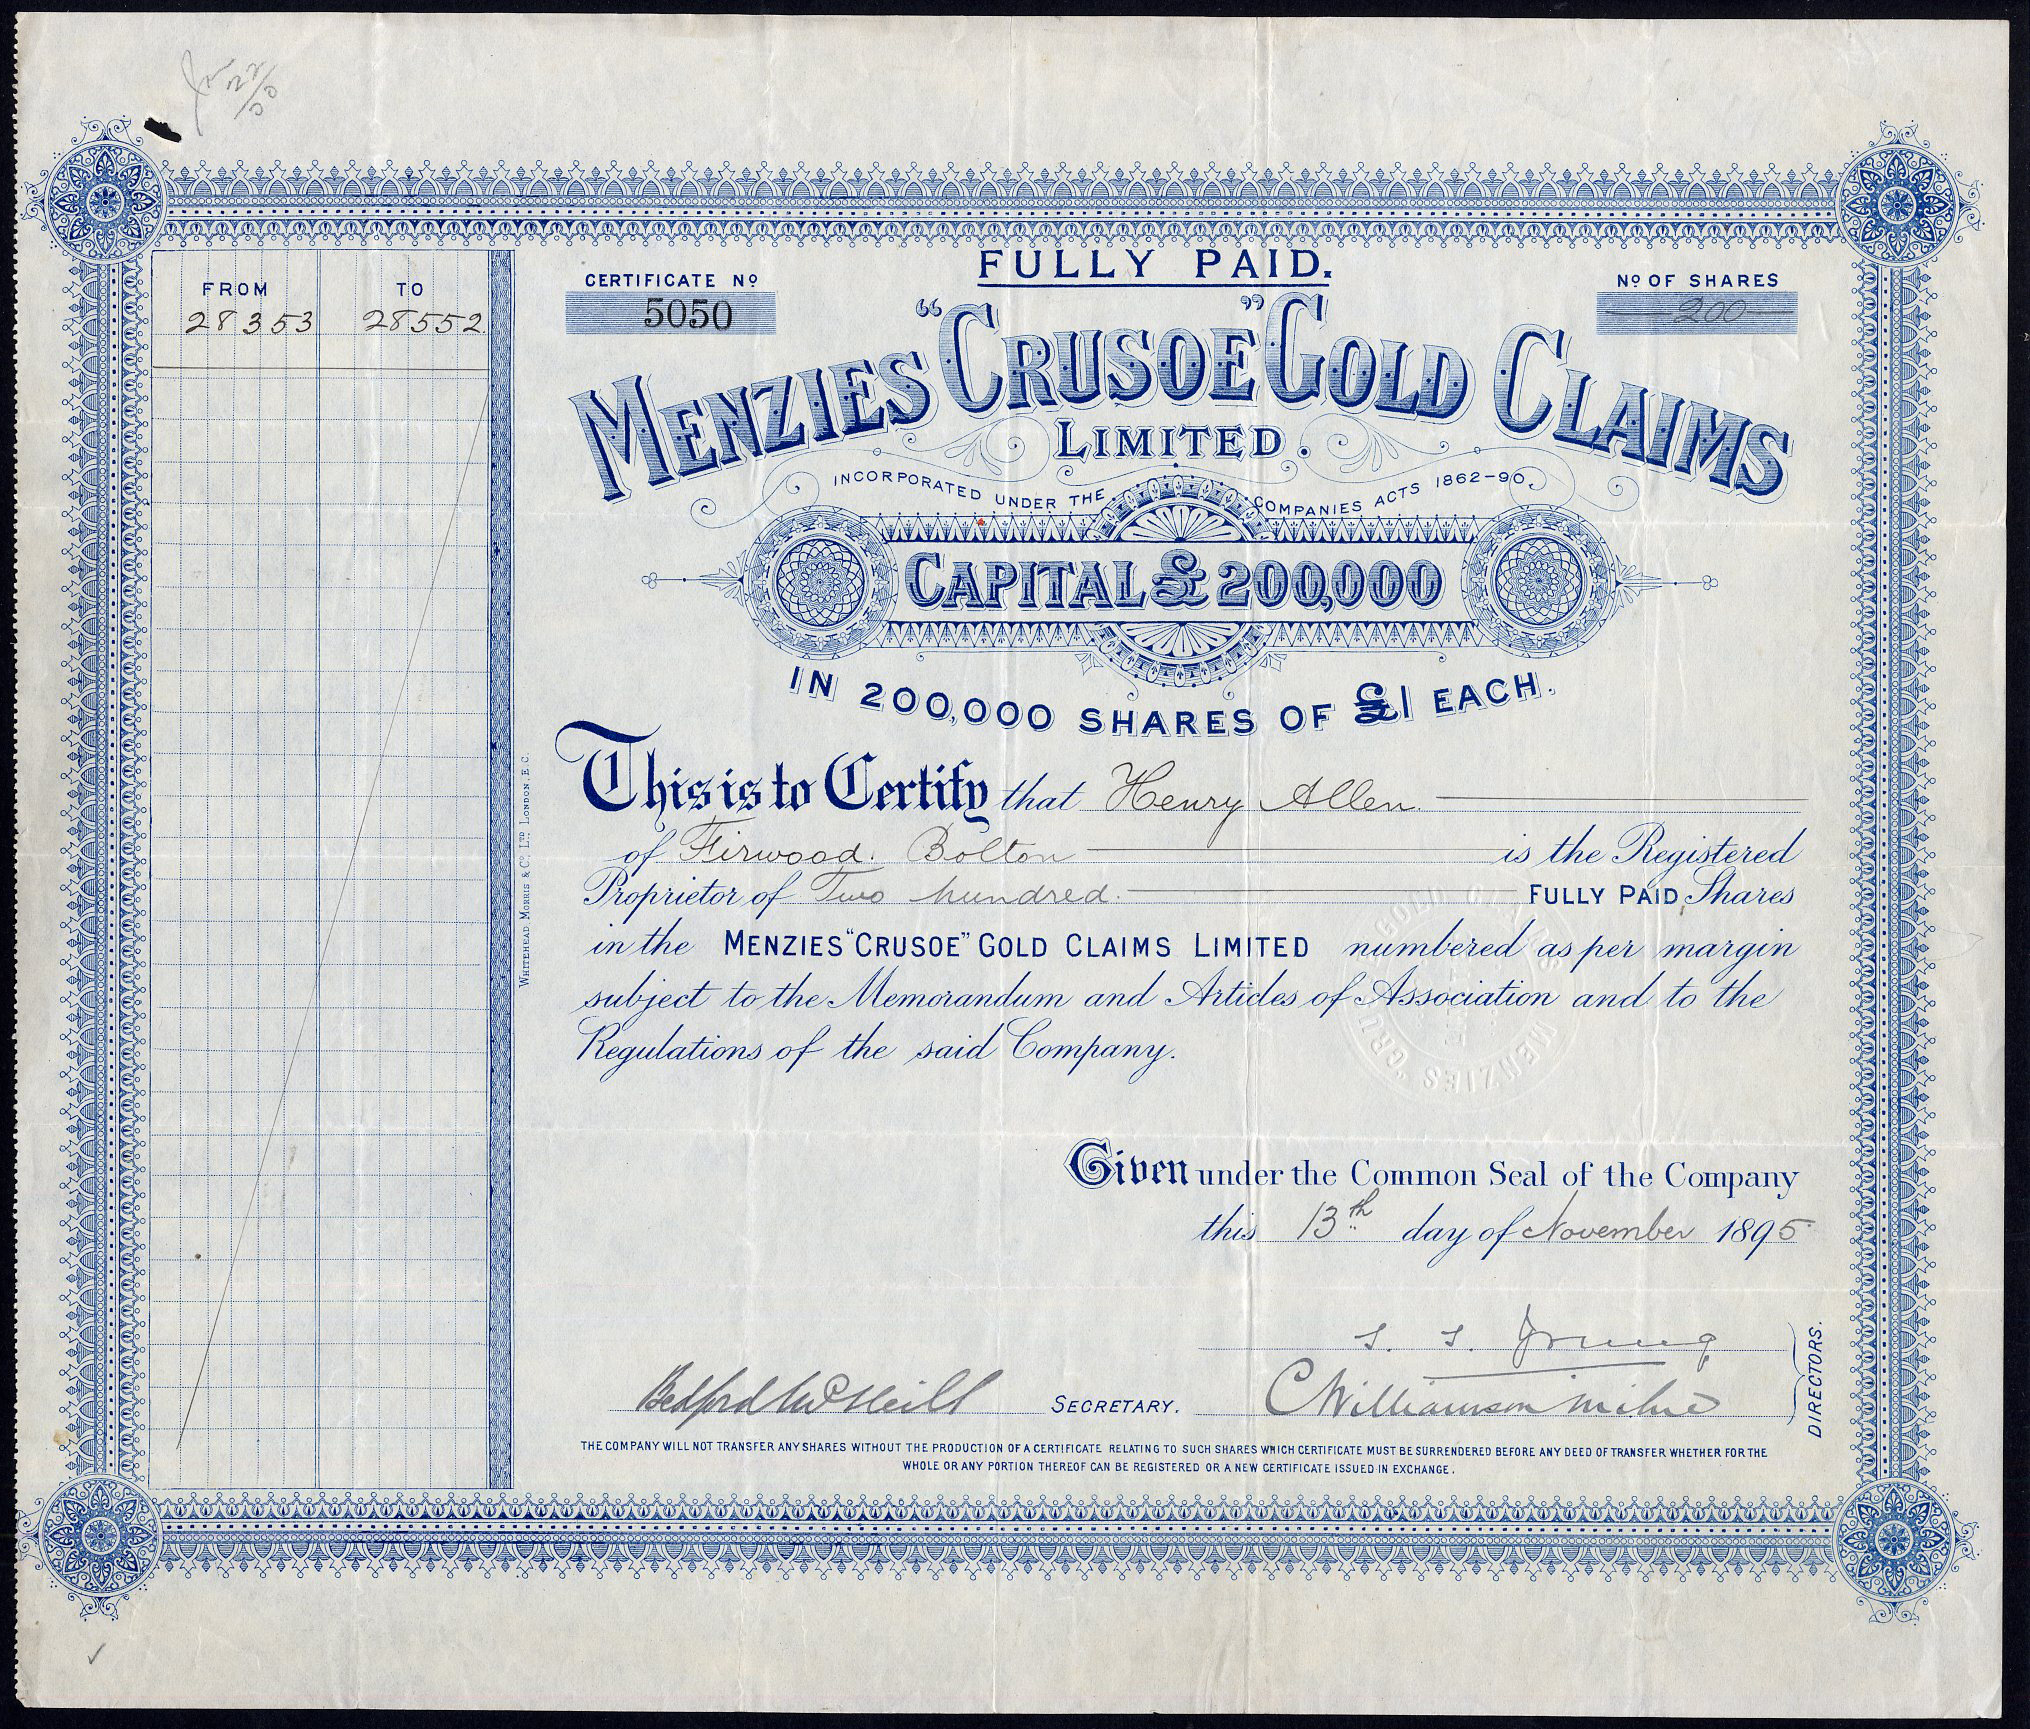 FULLY PAID.
FROM TO
28353 28552
CERTIFICATE Nº
5050
Nº OF SHARES
200
MENZIES "CRUSOE" GOLD CLAIMS
LIMITED.
INCORPORATED UNDER THE COMPANIES ACTS 1862-90.
CAPITAL £200,000
IN 200,000 SHARES OF £1 EACH.
This is to Certify that Henry Allen
of Firwood. Bolton is the Registered
Proprietor of Two hundred. FULLY PAID Shares
in the MENZIES "CRUSOE" GOLD CLAIMS LIMITED numbered as per margin
subject to the Memorandum and Articles of Association and to the
Regulations of the said Company.
MENZIES "CRUSOE" GOLD CLAIMS
Given under the Common Seal of the Company
this 13th day of November 1895
Bedford McNeill SECRETARY.
C Williamson Milne
DIRECTORS.
THE COMPANY WILL NOT TRANSFER ANY SHARES WITHOUT THE PRODUCTION OF A CERTIFICATE RELATING TO SUCH SHARES WHICH CERTIFICATE MUST BE SURRENDERED BEFORE ANY DEED OF TRANSFER WHETHER FOR THE
WHOLE OR ANY PORTION THEREOF CAN BE REGISTERED OR A NEW CERTIFICATE ISSUED IN EXCHANGE.
WHITEHEAD MORRIS & Co. LTD LONDON, E.C.